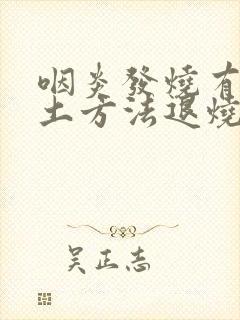 咽炎發燒有
土方法退燒
吳正志